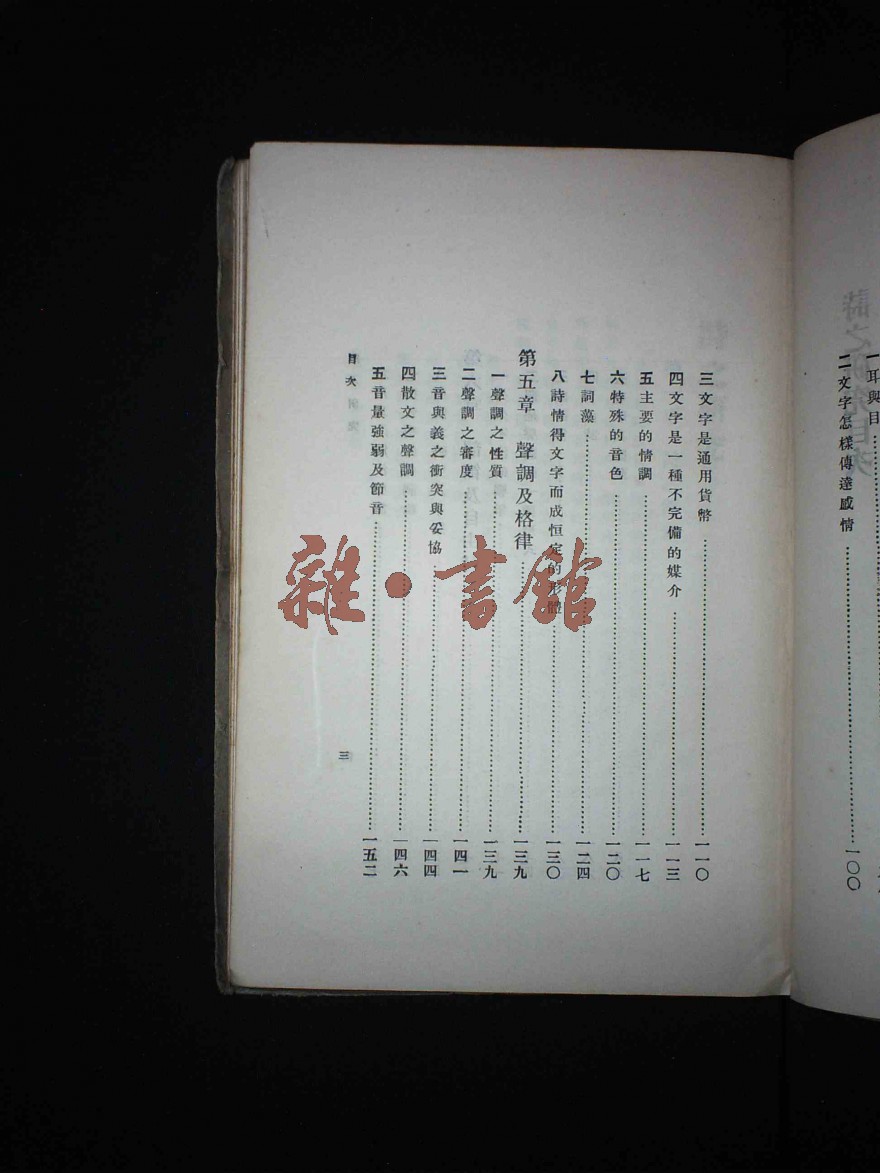 一 耳與目
二 文字怎樣傳達感情……一〇〇
三 文字是通用貨幣……一一〇
四 文字是一種不完備的媒介……一一三
五 主要的情調……一一七
六 特殊的音色……一二〇
七 詞藻……一二四
八 詩情得文字而成恒定的形體……一三〇
第五章 聲調及格律……一三九
一 聲調之性質……一三九
二 聲調之審度……一四一
三 音與義之衝突與妥協……一四四
四 散文之聲調……一四六
五 音量強弱及節音……一五二
目次
三
雜·書館